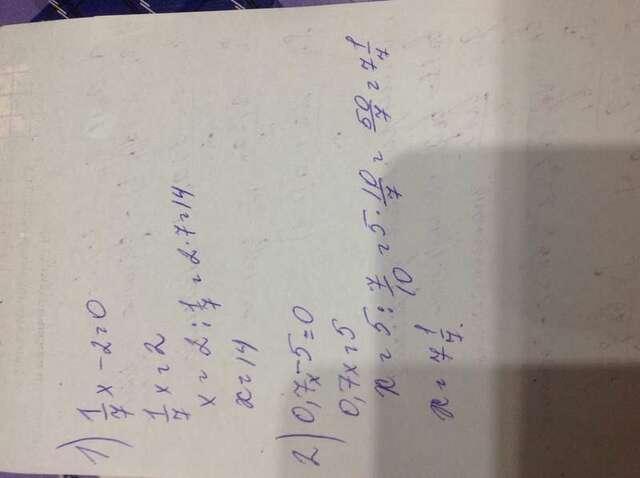 1) 1/7 x - 2 = 0
1/7 x = 2
x = 2 : 1/7 = 2 · 7 = 14
x = 14
2) 0,7x - 5 = 0
0,7x = 5
x = 5 : 7/10 = 5 · 10/7 = 50/7 = 7 1/7
x = 7 1/7.